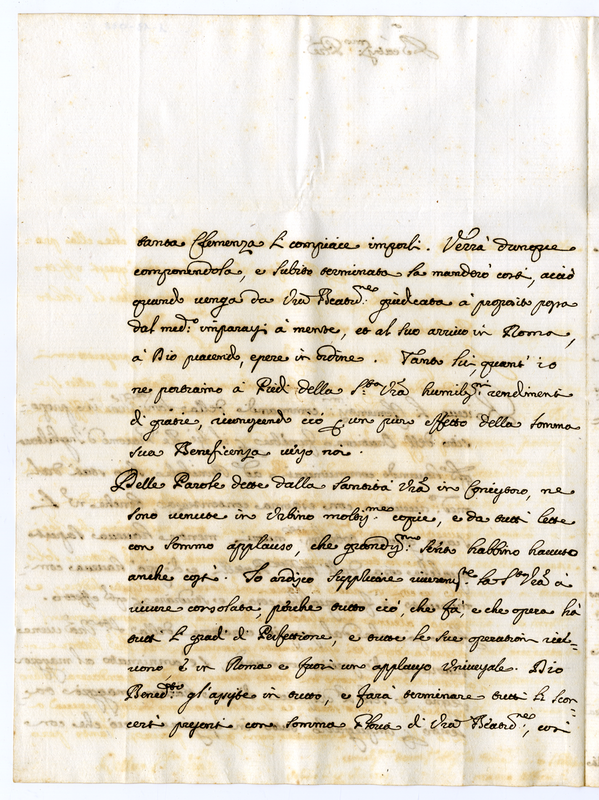 tanta Clemenza si compiace imporli. Verrà dunque
componendola, e subito terminata la manderò costì, acciò
quando venga da Vrã Beatd.ne giudicata à proposito possa
dal med.o impararsi à mente, et al suo arrivo in Roma,
à Dio piacendo, essere in ordine. Tanto lui quant' io
ne portiamo à Piedi della S.tà Vrã humiliss.mi rendimenti
di gratie, riconoscendo ciò un puro effetto della somma
sua Beneficenza verso noi.
Delle Parole dette dalla Santità Vrã in Concistoro, ne
sono venute in Urbino moltiss.me copie, e da tutti lette
con sommo applauso, che grandiss.mo sento habbino havuto
anche costì. Io ardisco supplicare la S.tà Vrã à
vivere consolata, perche tutto ciò, che fà, e che opera hà
tutti li gradi di Perfettione, e tutte le sue operationi
vono è in Roma e fuori un applauso Universale. Dio
Bened.to gl'assiste in tutto, e farà terminare tutti li scon-
certi presenti con somma Gloria di Vrã Beatd.ne, così